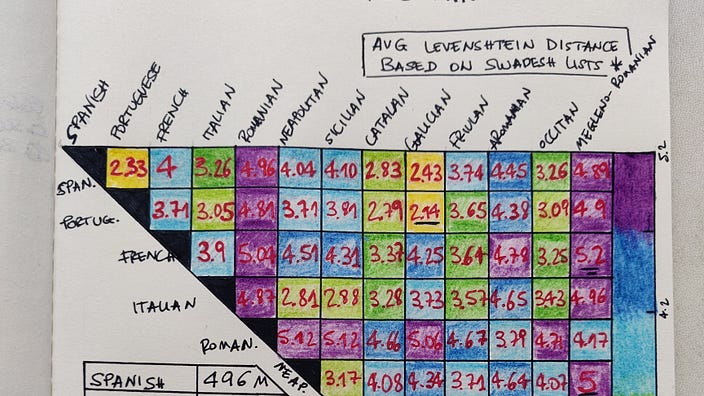 AVG LEVENSHTEIN DISTANCE
BASED ON SWADESH LISTS *
SPANISH PORTUGUESE FRENCH ITALIAN ROMANIAN NEAPOLITAN SICILIAN CATALAN GALICIAN FRIULAN AROMANIAN OCCITAN MEGLENO-ROMANIAN
SPAN. 2.33 4 3.26 4.96 4.04 4.10 2.83 2.43 3.74 4.45 3.26 4.89 5.2
PORTUG. 3.71 3.05 4.81 3.71 3.81 2.79 2.14 3.65 4.38 3.09 4.9
FRENCH 3.9 5.04 4.51 4.31 3.37 4.25 3.64 4.78 3.25 5.2
ITALIAN 4.87 2.81 2.88 3.28 3.73 3.57 4.65 3.43 4.96 4.2
ROMAN. 5.12 5.12 4.66 5.06 4.67 3.79 4.71 4.17
NEAP. 3.17 4.08 4.34 3.71 4.64 4.07 5
SPANISH 496M